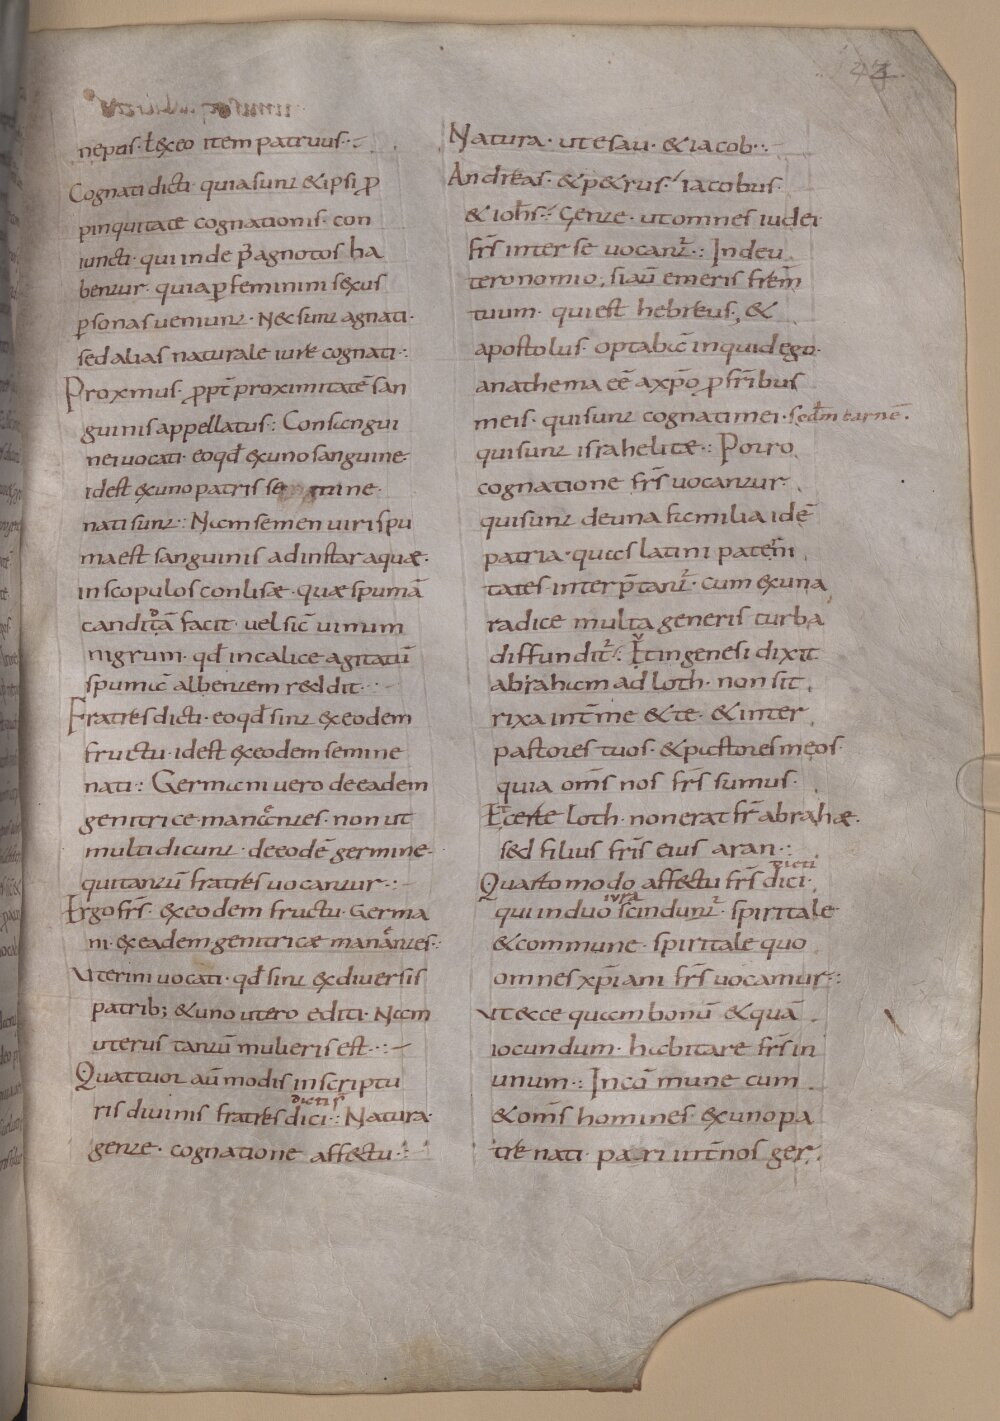 43
neptis· ł & ex eo item patruus·:
Cognati dicti· quia sunt & ipsi ꝓ
pinquitate cognationis· con
iuncti· qui inde p̄ agnatos ha
bentur· quia ꝑ feminini sexus
ꝑsonas ueniunt· Nec sunt agnati·
sed alias naturale iure cognati·:
Proximus· ꝓpt̄ proximitatē san
guinis appellatus·: Consangui
nei uocati· eo qd̄ ex uno sanguine·
id est ex uno patris se mine·
nati sunt·: Nam semen uiri spu
ma est sanguinis ad instar aquae·
in scopulos conlisae· quae spumā
candidā facit· uel sic̄ uinum
nigrum· qd̄ in calice agitatū
spumā albentem reddit·:
Fratres dicti· eo qd̄ sint ex eodem
fructu· id est ex eodem semine
nati·: Germani uero de eadem
genitrice manantes· non ut
multi dicunt· de eodē germine·
qui tantū fratres uocantur·:
Ergo frs̄· ex eodem fructu· Germa
ni· ex eadem genitricae manantes·:
Vterini uocati· qd̄ sint ex diuersis
patrib; & uno utero editi· Nam
uterus tantū mulieris est·:
Quattuor aū modis in scriptu
dictis
ris diuinis fratres dici·: Natura·
gente· cognatione affectu·:
Natura· ut esau· & iacob·:
Andreas· & petrus· iacobus·
& ioħs·: Gente· ut omnes iudei
frs̄ inter se uocant᷑·: In deu
teronomio; si aū emeris frēm
tuum· qui est hebreus; &
apostolus· optabā inquid ego·
anathema eē a xp̄o ꝓ frībus
meis· qui sunt cognati mei· scd̄m carnē·
qui sunt israhelitae·: Porro
cognatione frs̄ uocantur
qui sunt de una familia idē
patria· quas latini patern̄i
tates inter p̄tant᷑· cum ex una
radice multa generis turba
diffundit᷑·: Et in genesi dixit
abraham ad loth· non sit
rixa int̄ me & te· & inter
pastores tuos· & pastores meos·
quia om̄s nos frs̄ sumus·
Et certe loth· non erat fr̄ abrahae·
sed filius fris̄ eius aran·:
dicti
Quarto modo affectu frs̄ dici·
iura
qui in duo scindunt᷑· spiritale
& commune· spiritale quo
omnes xp̄iani frs̄ uocamur·:
Vt ecce quam bonū & quā
iocundum· habitare frs̄ in
unum·: In cōmune cum
& om̄s homines· ex uno pa
tre nati· pari int̄ nos ger